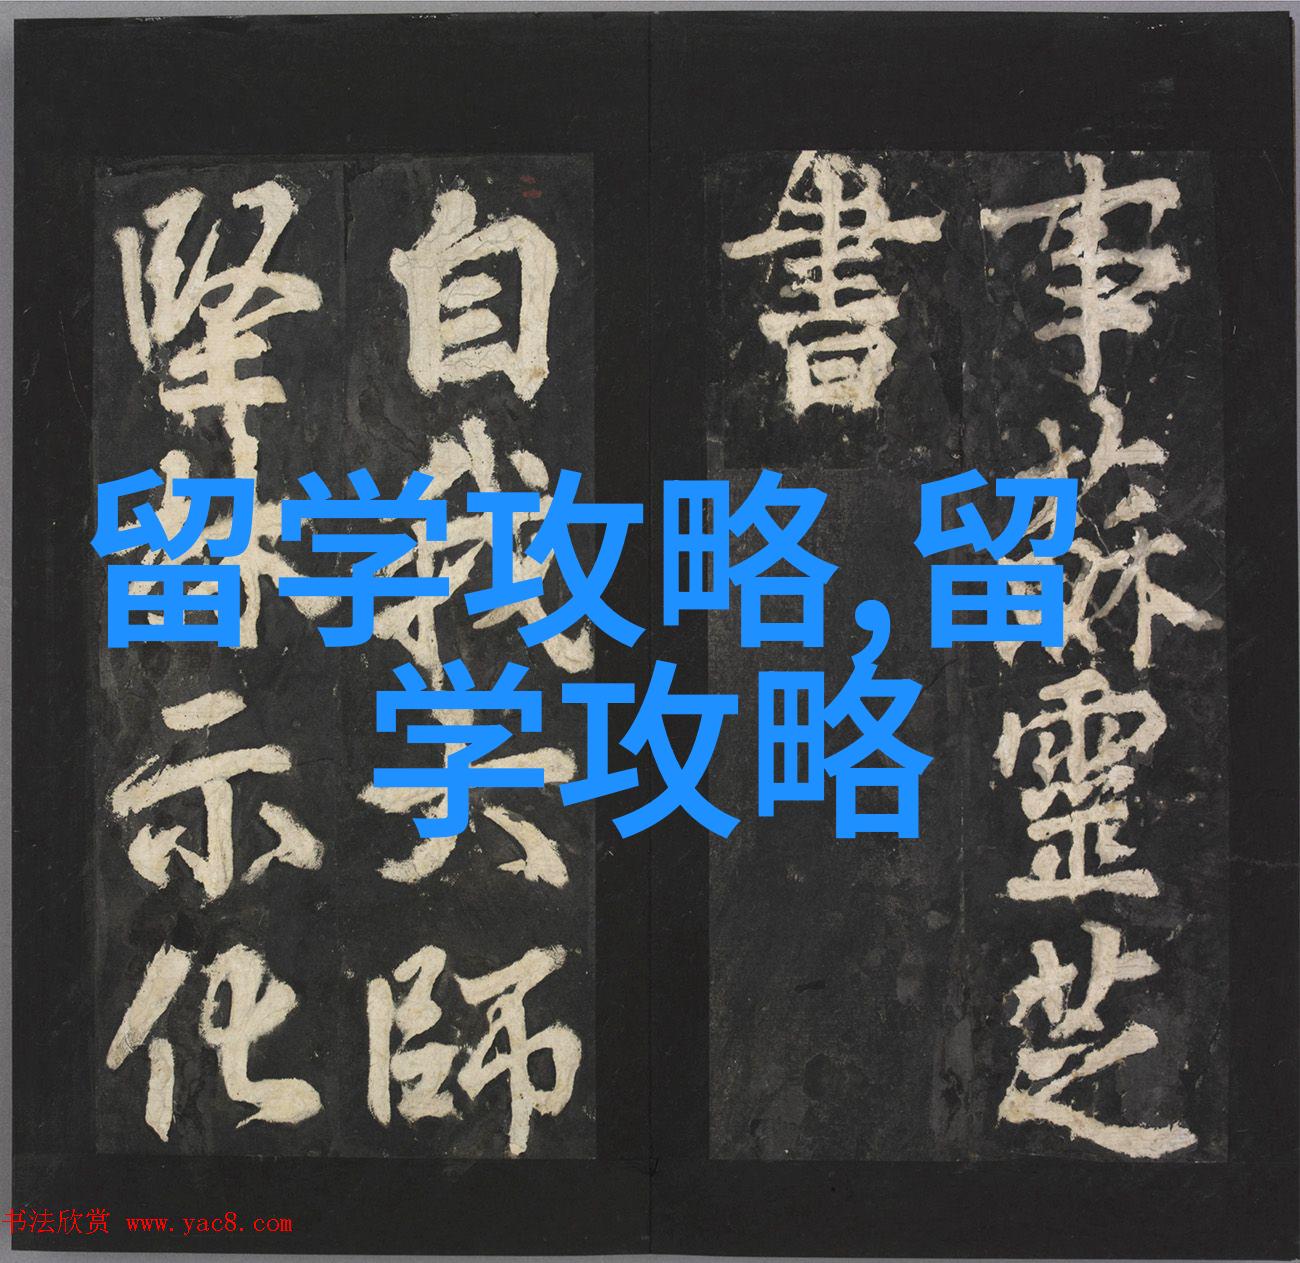 事蘇靈芝
書
自我大師
堅林示化
留学攻略,留
学攻略
书法欣赏 www.yac8.com